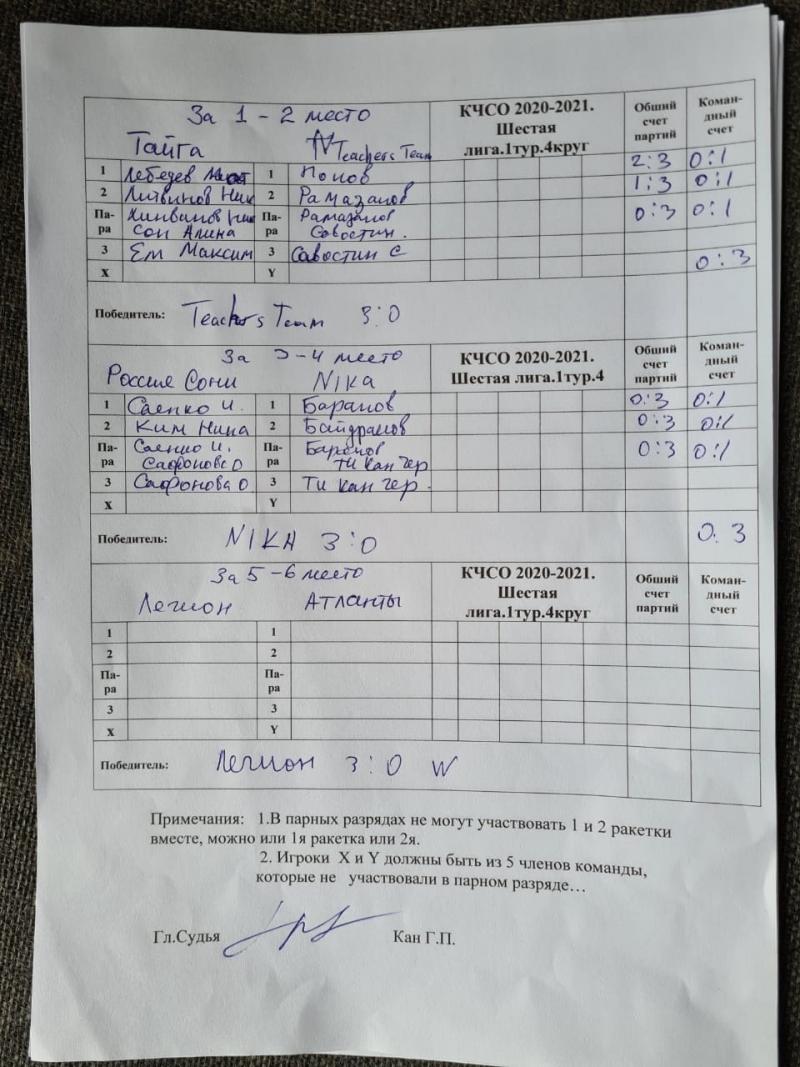 За 1-2 место
Тайга Teachers Team
КЧСО 2020-2021.
Шестая
лига.1тур.4круг
Общий
счет
партий
Коман-
дный
счет
1 Лебедев 1 Попов 2:3 0:1
2 Литвинов Ник 2 Рамазанов 1:3 0:1
Па-
ра
Ник
Сон Алина
Па-
ра
Рамазанов
Савостин.
0:3 0:1
3 Ем Максим 3 Савостин С
X Y 0:3
Победитель: Teachers Team 3:0
За 3-4 место
Сони NIKA
КЧСО 2020-2021.
Шестая лига.1тур.4
Общий
счет
партий
Коман-
дный
счет
1 Саенко И. 1 Баранов 0:3 0:1
2 Ким Нина 2 0:3 0:1
Па-
ра
Саенко И.
Сафонова О
Па-
ра
Баранов
Ти кан гер
0:3 0:1
3 Сафонова О 3 Ти кан гер.
X Y
Победитель: NIKA 3:0 0:3
За 5-6 место
Легион Атланты
КЧСО 2020-2021.
Шестая
лига.1тур.4круг
Общий
счет
партий
Коман-
дный
счет
1 1
2 2
Па-
ра
Па-
ра
3 3
X Y
Победитель: Легион 3:0 W
Примечания: 1.В парных разрядах не могут участвовать 1 и 2 ракетки
вместе, можно или 1я ракетка или 2я.
2. Игроки X и Y должны быть из 5 членов команды,
которые не участвовали в парном разряде…
Гл.Судья Кан Г.П.